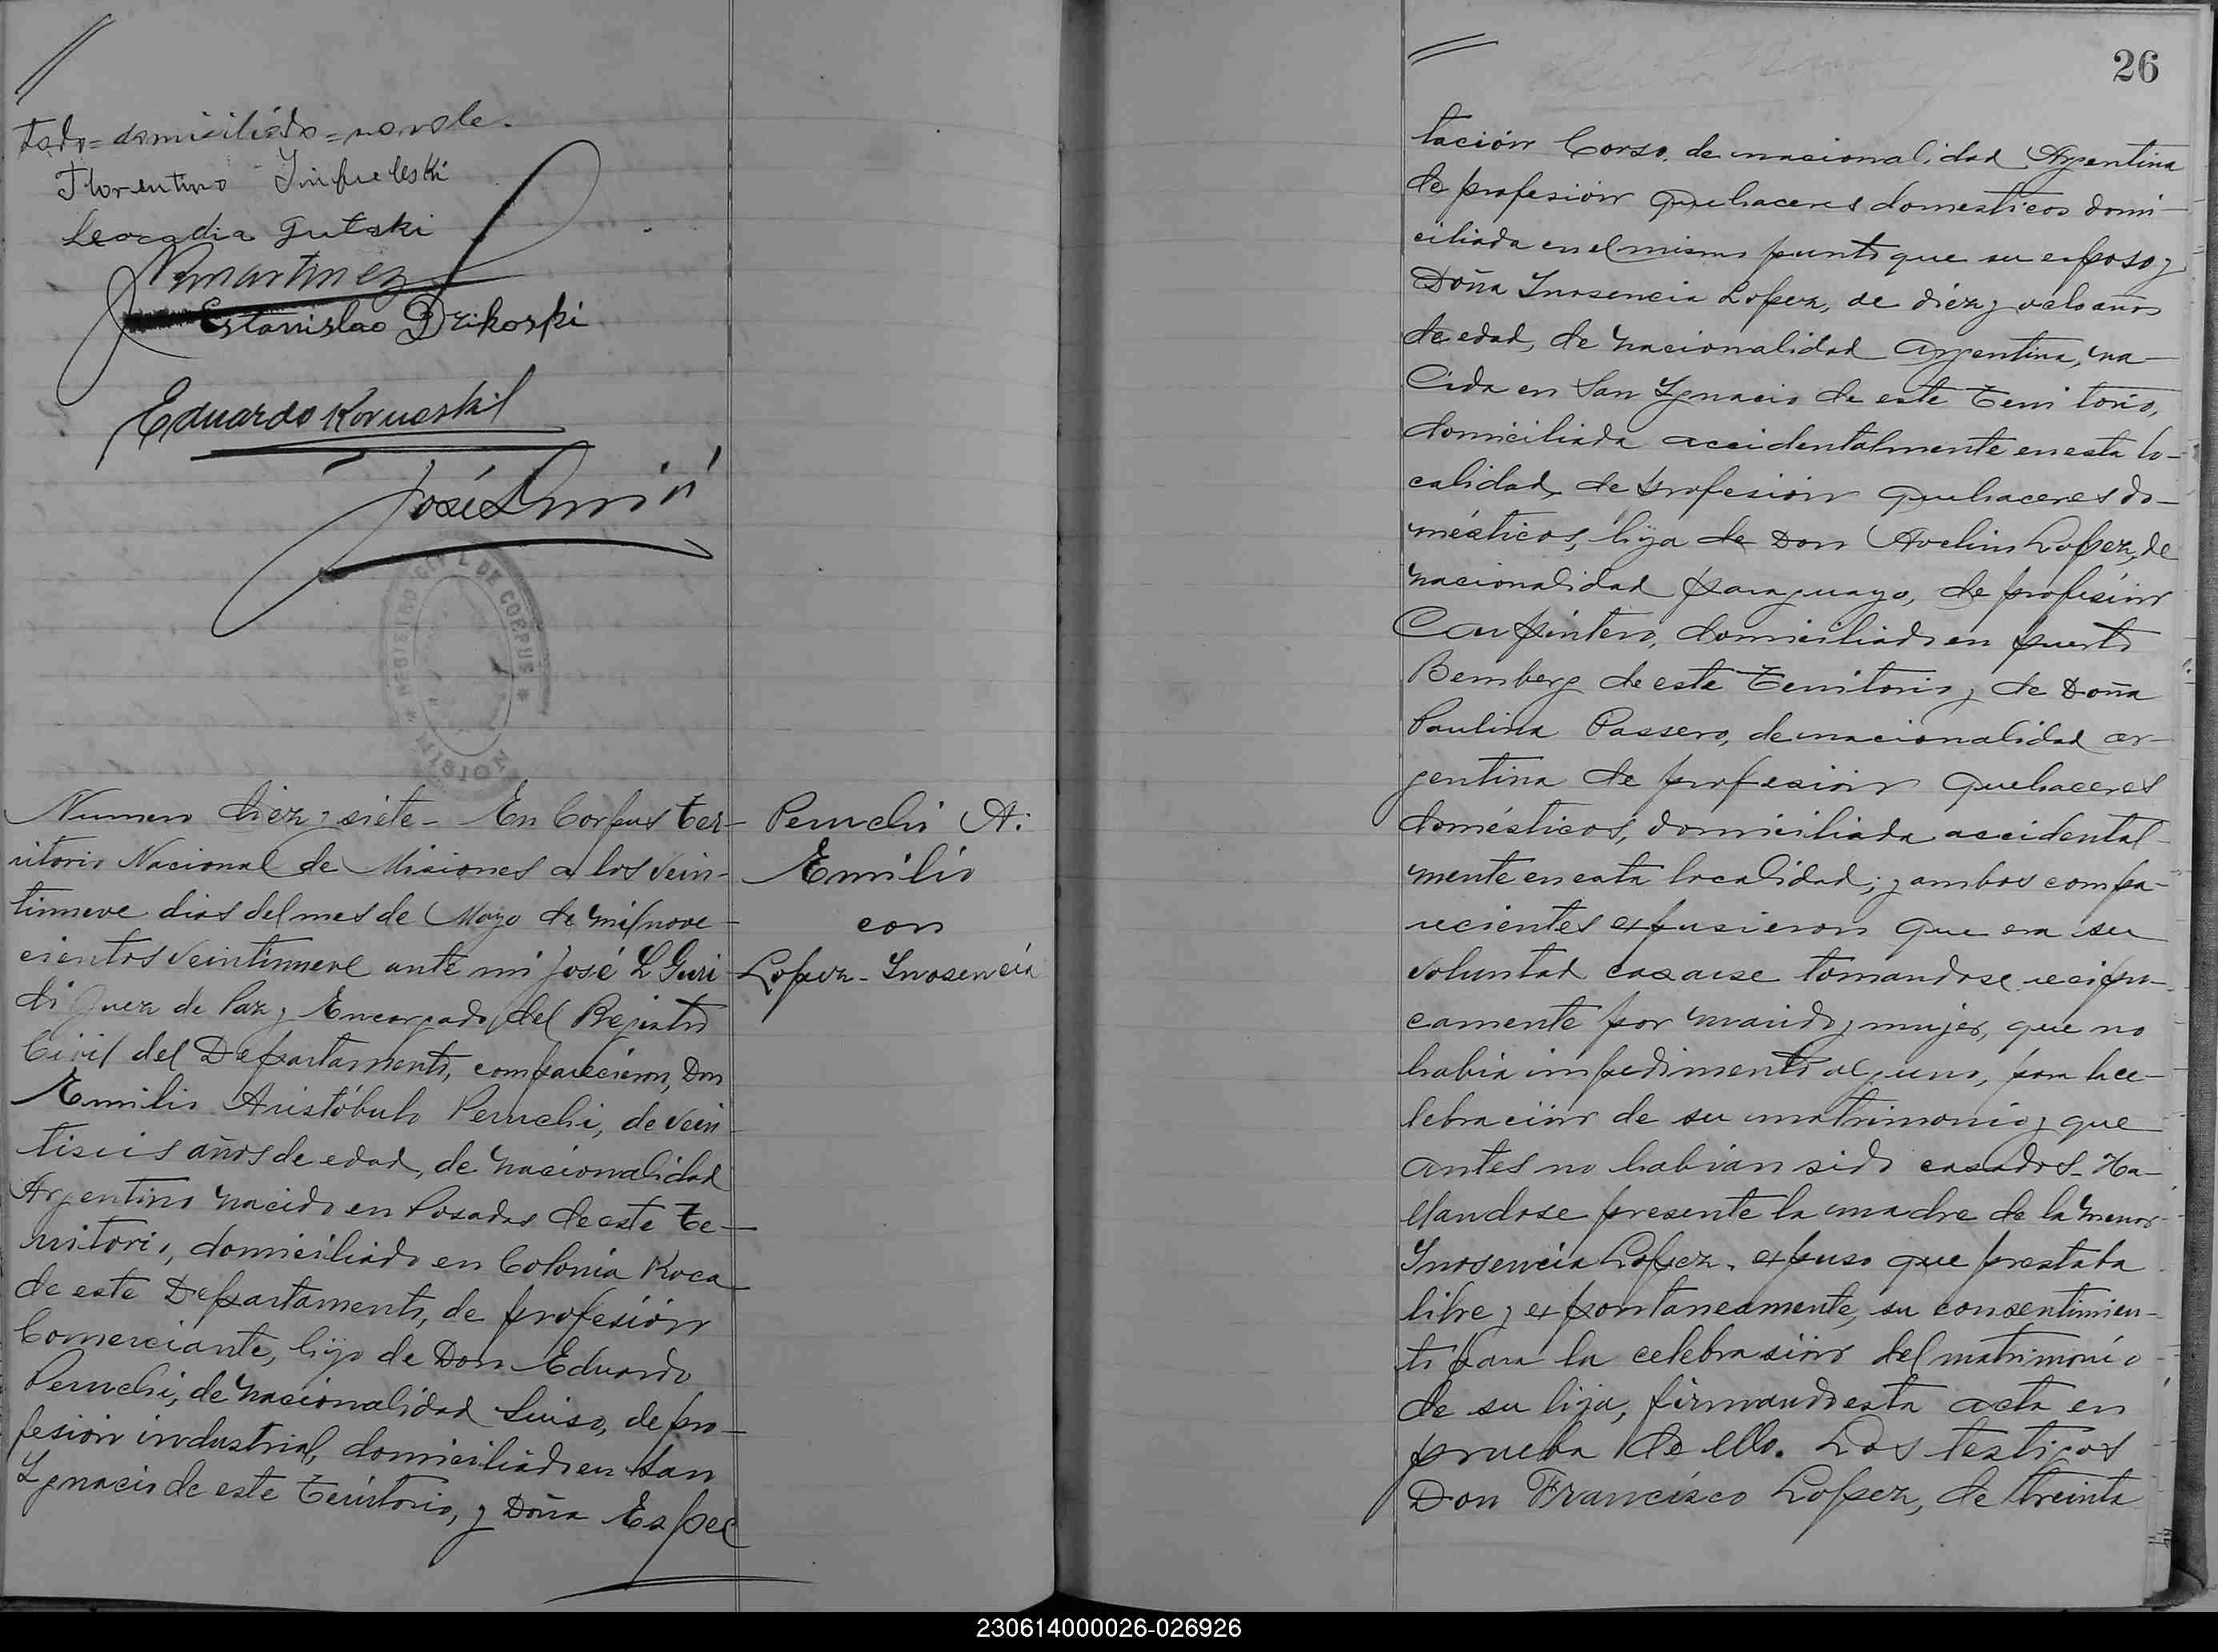 Tesdo = domiciliado = no vale.
Florentino
Leocadia Gutski
Martinez
Estanislao Drikoski
Eduardo Korneskil
José L
REGISTRO CIVIL DE CORPUS * MISIONES *
Numero diez y siete - En Corpus Ter-
ritorio Nacional de Misiones a los vein-
tinueve dias del mes de Mayo de mil nove-
cientos veintinueve ante mi José L Guri-
di Juez de Paz y Encargado del Registro
Civil del Departamento, comparecieron, Don
Emilio Aristóbulo Peruchi, de vein-
tiseis años de edad, de nacionalidad
Argentino nacido en Posadas de este Te-
rritorio, domiciliado en Colonia Roca
de este Departamento, de profesión
Comerciante, hijo de Don Eduardo
Peruchi, de nacionalidad Suiso, de pro-
fesion industrial, domiciliado en San
Ygnacio de este Territorio, y Doña Espec
Peruchi A:
Emilio
con
Lopez - Inosencia
26
tación Corso, de nacionalidad Argentina
de profesión quehaceres domesticos domi-
ciliada en el mismo punto que su esposo y
Doña Inosencia Lopez, de diez y ocho años
de edad, de nacionalidad argentina, na-
cida en San Ygnacio de este Territorio,
domiciliada accidentalmente en esta lo-
calidad, de profesión quehaceres do-
mésticos, hija de Don Avelino Lopez, de
nacionalidad paraguayo, de profesión
Carpintero, domiciliado en puerto
Bemberg de este Territorio y de Doña
Paulina Passero, de nacionalidad ar-
gentina de profesión quehaceres
domésticos, domiciliada accidental-
mente en esta localidad; y ambos compa-
recientes expusieron que era su
voluntad casarse tomandose recipro-
camente por marido y mujer, que no
habia impedimento alguno, para la ce-
lebración de su matrimonio y que
antes no habian sido casados - Ha-
llandose presente la madre de la menor
Inosencia Lopez, expuso que prestaba
libre y expontaneamente, su consentimien-
to para la celebrasión del matrimonio
de su hija, firmando esta acta en
prueba de ello. Los testigos
Don Francisco Lopez, de treinta
230614000026-026926